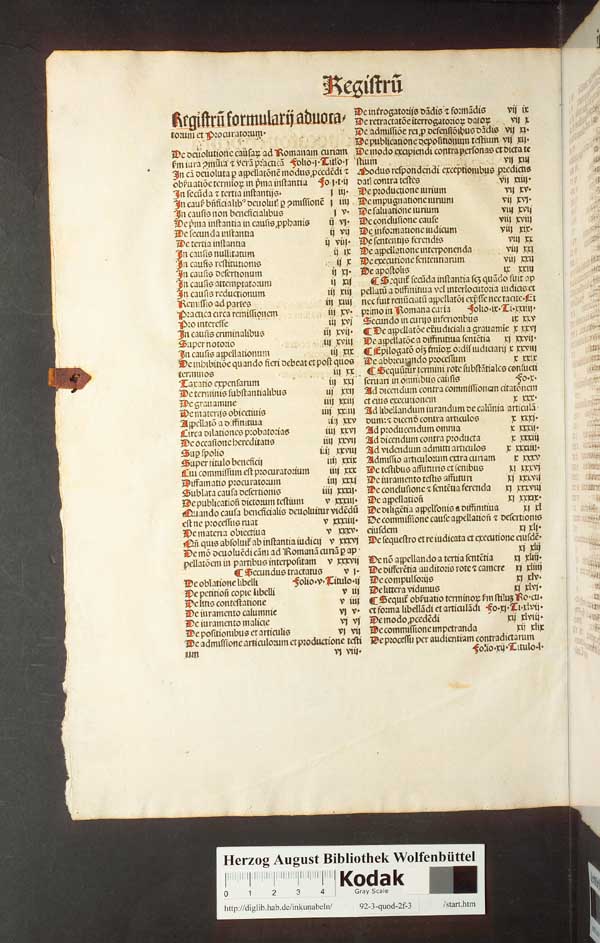 Registrū
Registrū formularij aduoca-
torum et Procuratorum.
De deuolutione causarum ad Romanam curiam
Folio.j. Titulo.j
In secūda et tertia instantijs. j iij.
In causis non beneficialibus j v.
De secunda instantia ij vij
De tertia instantia ij viij.
In causis nullitatum ij ix
In causis restitutionis ij x
In causis desertionum ij xj.
In causis attemptatorum ij xij
In causis reductionum iij xiij
Remissio ad partes iij xiiij
Practica circa remissionem iij xv.
Pro interesse iij xvj
In causis criminalibus iij xvij.
Super notorio iij xviij
In causis appellationum iij xix
De inhibitiōe quando fieri debeat et post quos
terminos iij xx
Taxatio expensarum iij xxj
De terminis substantialibus iij xxij
De grauamine iiij xxiij
De materijs obiectiuis iiij xxiiij
Appellatō a diffinitiua xxv
Circa dilationes probatorias iiij xxvj
De occasione hereditatis iiij xxvij
Suꝑ spolio xxviij
Super titulo beneficij iiij xxix
Cui commissum est procuratorium iiij xxx
Diffamatio procuratorum iiij xxxj
Sublata causa desertionis iiij xxxij.
De publicatiōe dictorum testium v xxxiij.
Quando causa beneficialis deuoluitur vidēdū
est ne processus ruat v xxxiiij.
De materia obiectiua v xxxv.
Qn̄ quis absoluit᷑ ab instantia iudicij v xxxvj
De mō deuoluēdi cām ad Romanā curiā ꝑ ap-
pellatōem in partibus interpositam v xxxvij
¶ Secundus tractatus v j.
De oblatione libelli Folio.v. Titulo.ij
De petitiōe copie libelli v iij
De litis contestatione v iiij
De iuramento calumnie vj v.
De iuramento malicie vj vj
De positionibus et articulis vj vij
De admissione articulorum et productione testi
um vj viij.
De interrogatorijs dādis et formādis vij ix
vij x
vij xj.
De publicatione depositionum testium vij xij.
De modo excipiendi contra personas et dicta te
stium vij xiij
Modus respondendi exceptionibus predictis
datis contra testes vij xiiij.
De productione iurium vij xv.
De impugnatione iurium vij xvj.
De saluatione iurium viij xvij
De conclusione cause viij xviij
De informatione iudicum viij xix.
De sententijs ferendis viij xx
De appellatione interponenda viij xxj
De executione sententiarum viij xxij
De apostolis ix xxiij
¶ Sequit᷑ secūda instantia
pellatū a diffinitiua vel interlocutoria iudicis et
primo in Romana curia Folio.ix. Ti.xxiiij.
Secundo in curijs inferioribus ix xxv
¶ De appellatōe extraiudiciali a grauamie x xxvj
De appellatōe a diffinitiua sentētia xj xxvij.
x xxviij
De abbreuiando processum x xxix
seruari in omnibus causis Fo.x.
Ad dicendum contra commissionem citatōnem
et eius executionem x xxx.
Ad libellandum iurandum de calūnia articulā
dum: et dicendū contra articulos x xxxj.
Ad producendum omnia x xxxij.
Ad dicendum contra producta x xxxiij
Ad videndum admitti articulos x xxxiiij.
Admissio articulorum extra curiam x xxxv
De testibus assuturis et senibus xj xxxvj
De iuramento testis assuturi xj xxxvij
De conclusione et sentētia ferenda xj xxxviij
De appellatiōe xj xxxix.
De diligētia appellōnis a diffinitiua xj xl
De commissione cause appellatiōis et desertionis
eiusdem xj xlj.
De sequestro et re iudicata et executione eiusdē-
xj xlij
De nō appellando a tertia sentētia xj xliij.
De differētia auditoris rote et camere xj xliiij
De compulsorijs xj xlv.
De littera vidimus xj xlvj.
et forma libellādi et articulādi Fo.xj.Ti.xlvij.
De modo ꝓcedēdi xij xlviij.
De commissione impetranda xij xlix
De processu per audientiam contradictarum
Folio.xij. Titulo.l.
Herzog August Bibliothek Wolfenbüttel
0 1 2 3 4 Kodak
Gray Scale
http://diglib.hab.de/inkunabeln/ 92-3-quod-2f-3 /start.htm